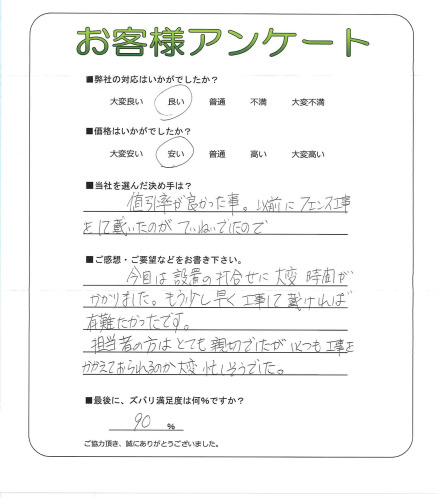 お客様アンケート
■弊社の対応はいかがでしたか?
大変良い 良い 普通 不満 大変不満
■価格はいかがでしたか?
大変安い 安い 普通 高い 大変高い
■当社を選んだ決め手は?
値引率が良かった事。以前にフェンス工事
をして戴いたのがていねいでたので
■ご感想・ご要望などをお書き下さい。
今回は設置の打合せに大変時間が
かかりました。もう少し早く工事して戴ければ
有難たかったです。
担当者の方はとても親切でしたが いつも工事を
かかえておられるのか大変忙しそうでした。
■最後に、ズバリ満足度は何%ですか?
90 %
ご協力頂き、誠にありがとうございました。